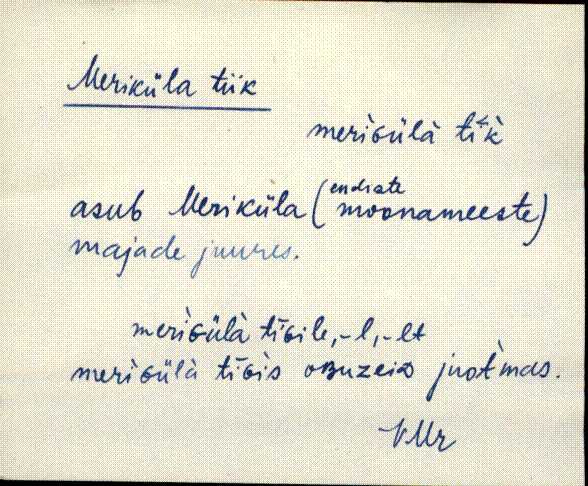 Meriküla tiik
meriɢülà tì̆k̀
asub Meriküla (endiste moonameeste)
majade juures.
meriɢülà tīɢile, -l, -lt
meriɢülà tīɢìs oʙuzeiᴅ juot̀mas.
VMr